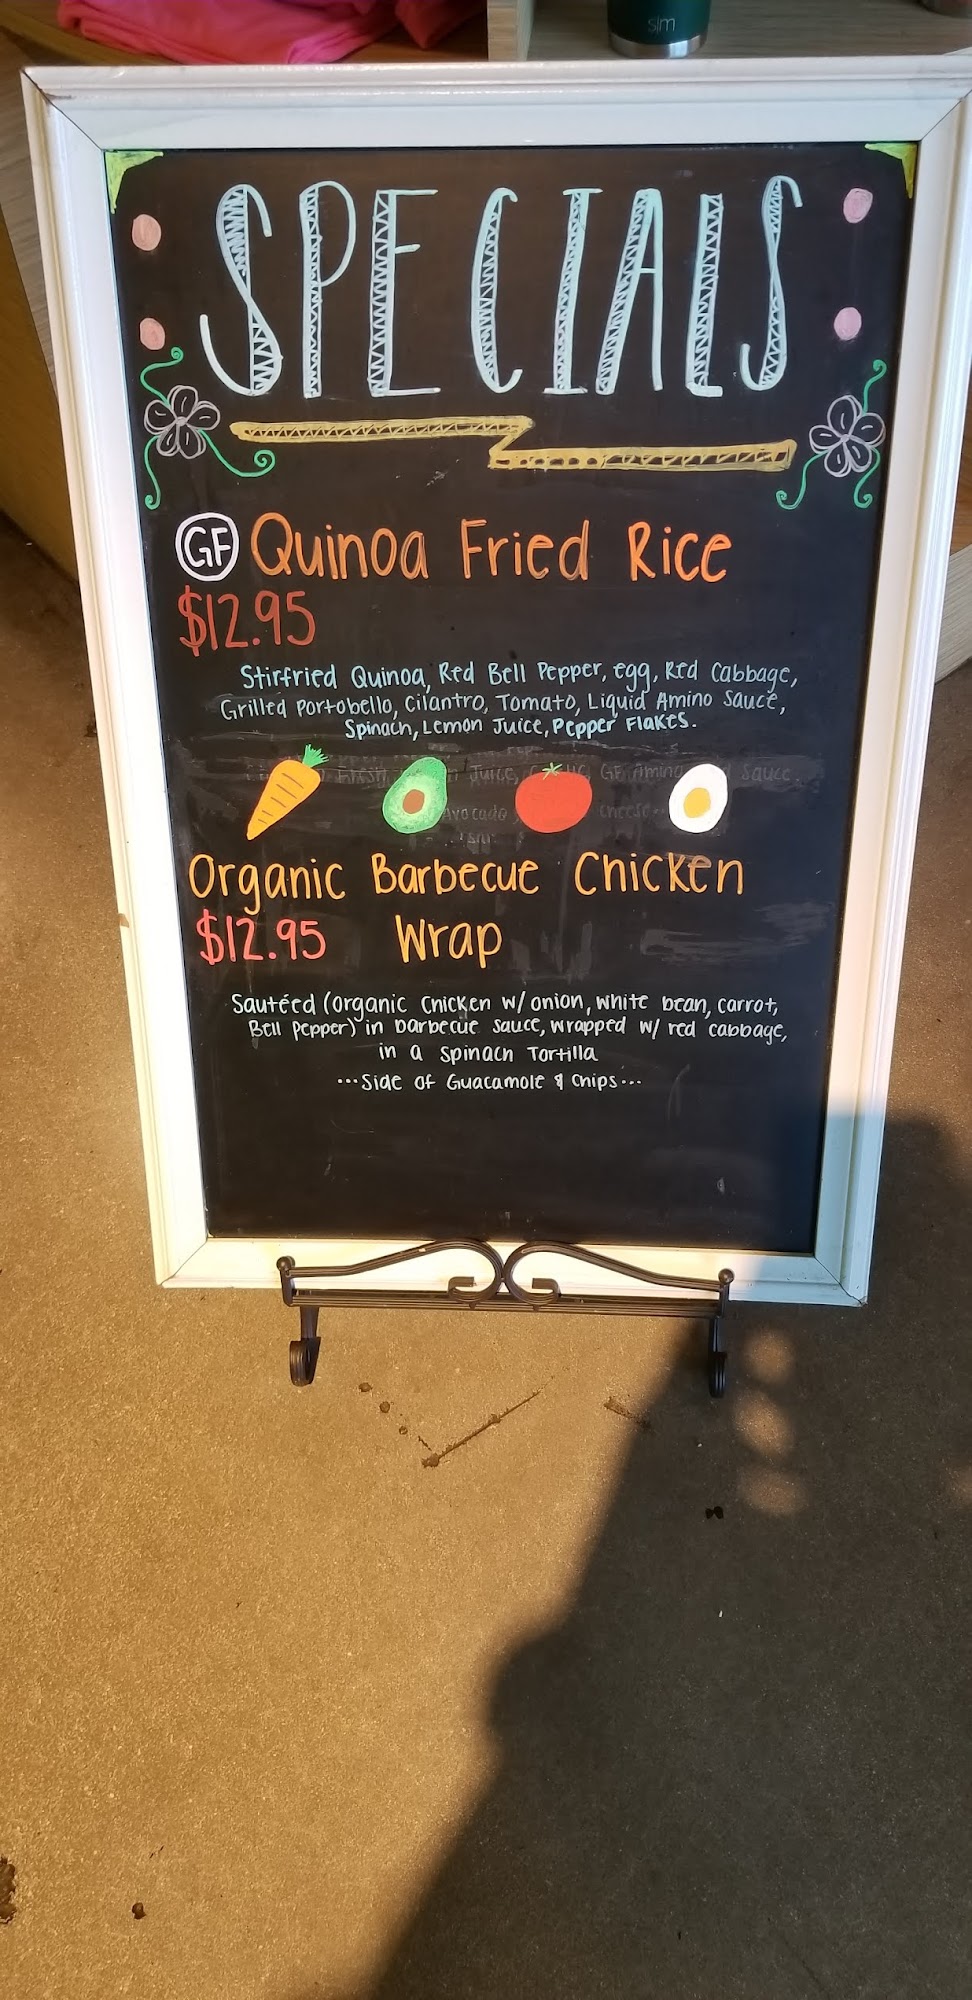 slm
SPECIALS
GF Quinoa Fried Rice
$12.95
Stirfried Quinoa, Red Bell Pepper, egg, Red Cabbage,
Grilled Portobello, Cilantro, Tomato, Liquid Amino Sauce,
Spinach, Lemon Juice, Pepper Flakes.
Fresh Juice, GF Amino Sauce.
Avocado cheese
Organic Barbecue Chicken
$12.95 Wrap
Sautéed (Organic Chicken w/ onion, white bean, carrot,
Bell Pepper) in barbecue sauce, wrapped w/ red cabbage,
in a Spinach Tortilla
...Side of Guacamole & Chips...